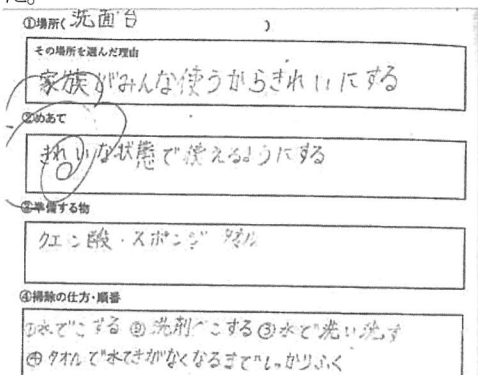 た。
①場所(洗面台)
その場所を選んだ理由
家族がみんな使うからきれいにする
②めあて
きれいな状態で使えるようにする
③準備する物
クエン酸・スポンジ タオル
④掃除の仕方・順番
①水でこする ②洗剤でこする ③水で洗い流す
④タオルで水てきがなくなるまでしっかりふく